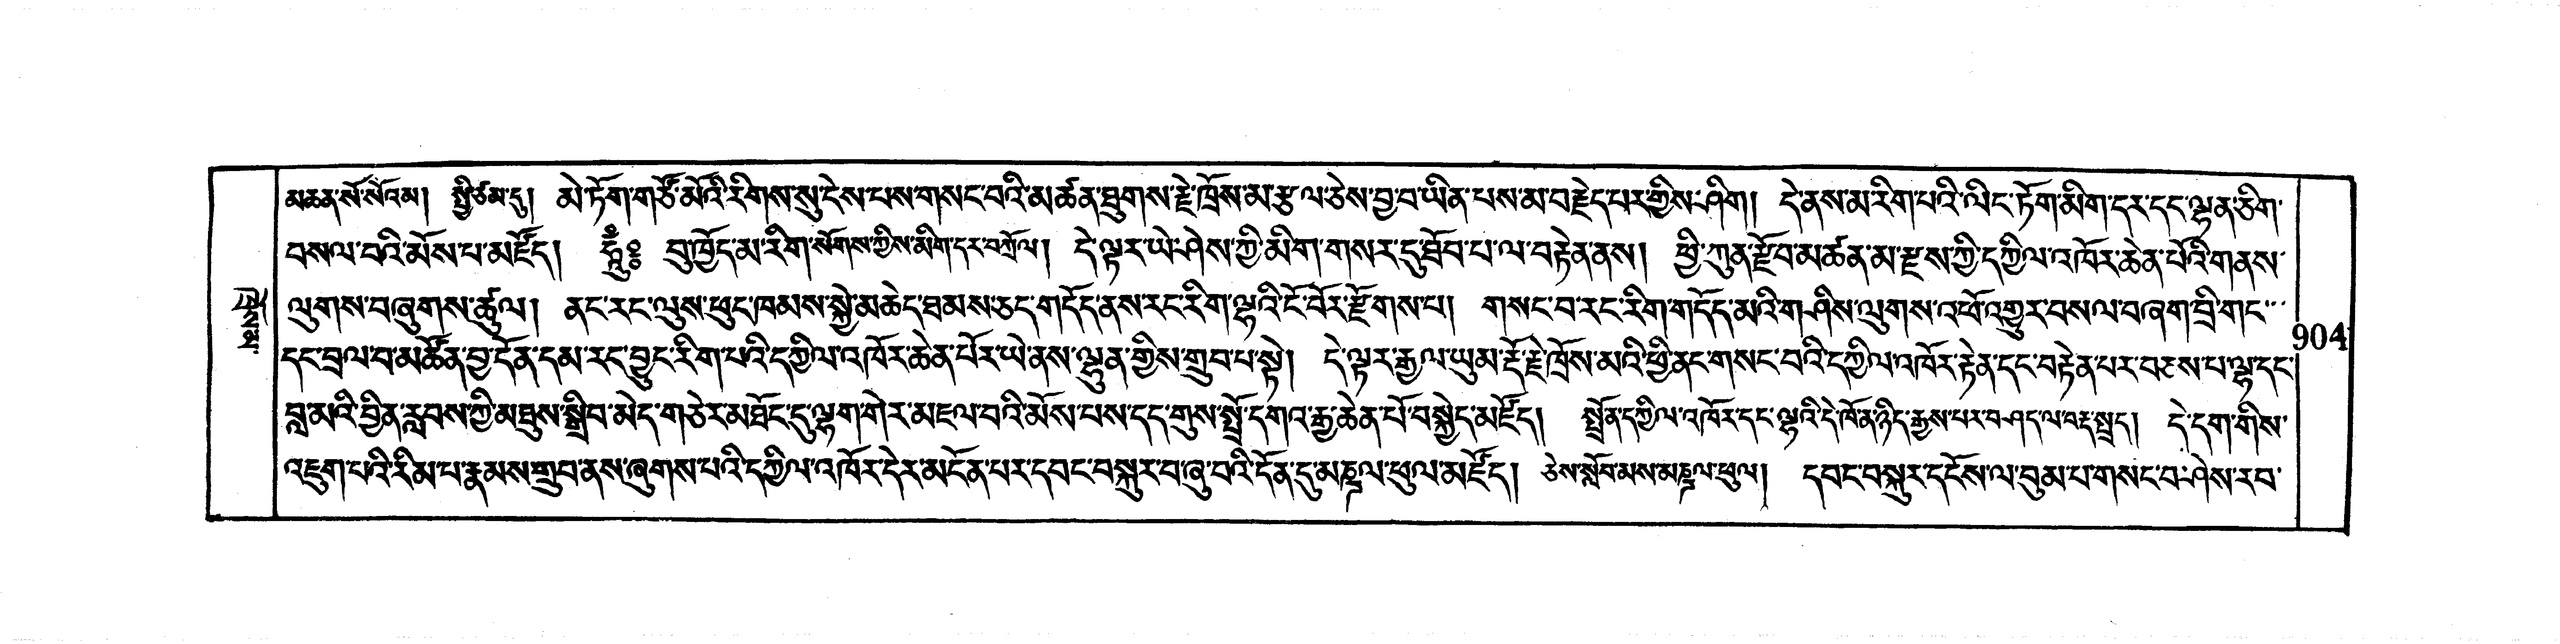 མཆན་སོ་སོའམ། སྤྱི་ཙམ་དུ། མེ་ཏོག་གཙོ་མོའི་རིགས་སུ་ངེས་པས་གསང་བའི་མཚན་ཐུགས་རྗེ་ཁྲོས་མ་རྩལ་ཅེས་བྱ་བ་ཡིན་པས་མ་བརྗེད་པར་གྱིས་ཤིག། དེ་ནས་མ་རིག་པའི་ལིང་ཏོག་མིག་དར་དང་ལྷན་ཅིག་
བསལ་བའི་མོས་པ་མཛོད། ཧཱུྃ༔ བུ་ཁྱོད་མ་རིག་སོགས་ཀྱིས་མིག་དར་བཀྲོལ། དེ་ལྟར་ཡེ་ཤེས་ཀྱི་མིག་གསར་དུ་ཐོབ་པ་ལ་བརྟེན་ནས། ཕྱི་ཀུན་རྫོབ་མཚན་མ་རྫས་ཀྱི་དཀྱིལ་འཁོར་ཆེན་པོའི་གནས་
ལུགས་བཞུགས་ཚུལ། ནང་རང་ལུས་ཕུང་ཁམས་སྐྱེ་མཆེད་ཐམས་ཅད་གདོད་ནས་རང་རིག་ལྷའི་ངོ་བོར་རྫོགས་པ། གསང་བ་རང་རིག་གདོད་མའི་གཤིས་ལུགས་འཕོ་འགྱུར་བསལ་བཞག་བྲི་གང་
དང་བྲལ་བ་མཚོན་བྱ་དོན་དམ་རང་བྱུང་རིག་པའི་དཀྱིལ་འཁོར་ཆེན་པོར་ཡེ་ནས་ལྷུན་གྱིས་གྲུབ་པ་སྟེ། དེ་ལྟར་རྒྱལ་ཡུམ་རྡོ་རྗེ་ཁྲོས་མའི་ཕྱི་ནང་གསང་བའི་དཀྱིལ་འཁོར་རྟེན་དང་བརྟེན་པར་བཅས་པ་ལྷ་དང་
བླ་མའི་བྱིན་རླབས་ཀྱི་མཐུས་སྒྲིབ་མེད་གཅེར་མཐོང་དུ་ལྷག་གེར་མཇལ་བའི་མོས་པས་དད་གུས་སྤྲོ་དགའ་རྒྱ་ཆེན་པོ་བསྐྱེད་མཛོད། སློན་དཀྱིལ་འཁོར་དང་ལྷའི་དེ་ཁོན་ཉིད་རྒྱས་པར་བཤད་ལ་བརྡ་སྤྲད། དེ་དག་གིས་
འཇུག་པའི་རིམ་པ་རྣམས་གྲུབ་ནས་ཞུགས་པའི་དཀྱིལ་འཁོར་དེར་མངོན་པར་དབང་བསྐུར་བ་ཞུ་བའི་དོན་དུ་མཎྜལ་ཕུལ་མཛོད། ཅེས་སློབ་མས་མཎྜལ་ཕུལ། དབང་བསྐུར་དངོས་ལ་བུམ་པ་གསང་བ་ཤེས་རབ་
904